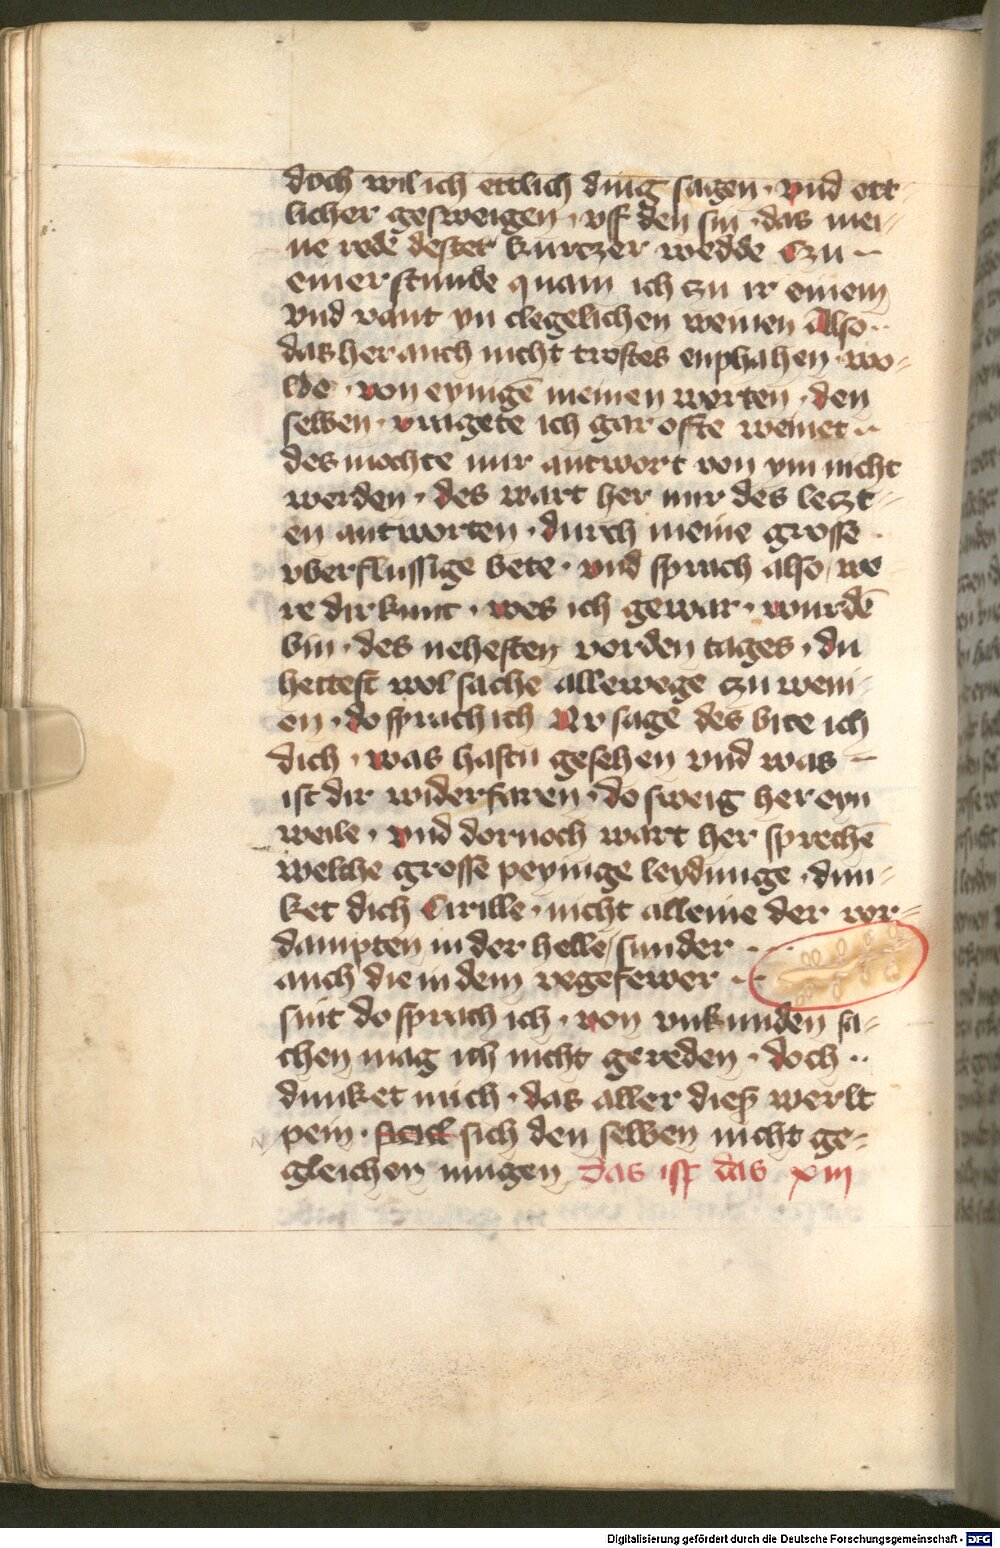 doch wil ich ettlich ding sagen · vnd ett-
licher gesweigen · vff den sin · das mei-
ne rede destet kurczer wedde Czu
einer stunde quam ich czu ir einem
vnd vant yn clegelichen weinen Also
das her auch nicht trostes enphahen · wo-
lde · von eynigē meinen worten · den
selben · vragete ich gar ofte weinet
des mochte mir antwort von ym nicht
werden · des wart her mir des leczt-
en antworten · durch meine grosse
vberflussige bete · vnd sprach also / we
re dir kunt · wes ich gewar · wurdē
bin · des nehesten vorden tages · du
hettest wol sache allewege czu wein-
en · do sprach ich Nv sage des bite ich
dich · was hastu gesehen vnd was
ist dir widerfaren · do sweig her eyn
weile · vnd dornoch wart her sprechē
welche grosse peynige leydunge · dun-
ket dich Cirille · nicht alleine der vor-
dampten in der helle / sunder
auch die in dem vegefewer
sint do sprach ich · von vnkunden sa-
chen mag ich nicht gereden · doch
dunket mich · das aller dieß werlt
pein · sich den selben nicht ge-
gleichen mugen das ist das xiii
Digitalisierung gefördert durch die Deutsche Forschungsgemeinschaft - DFG